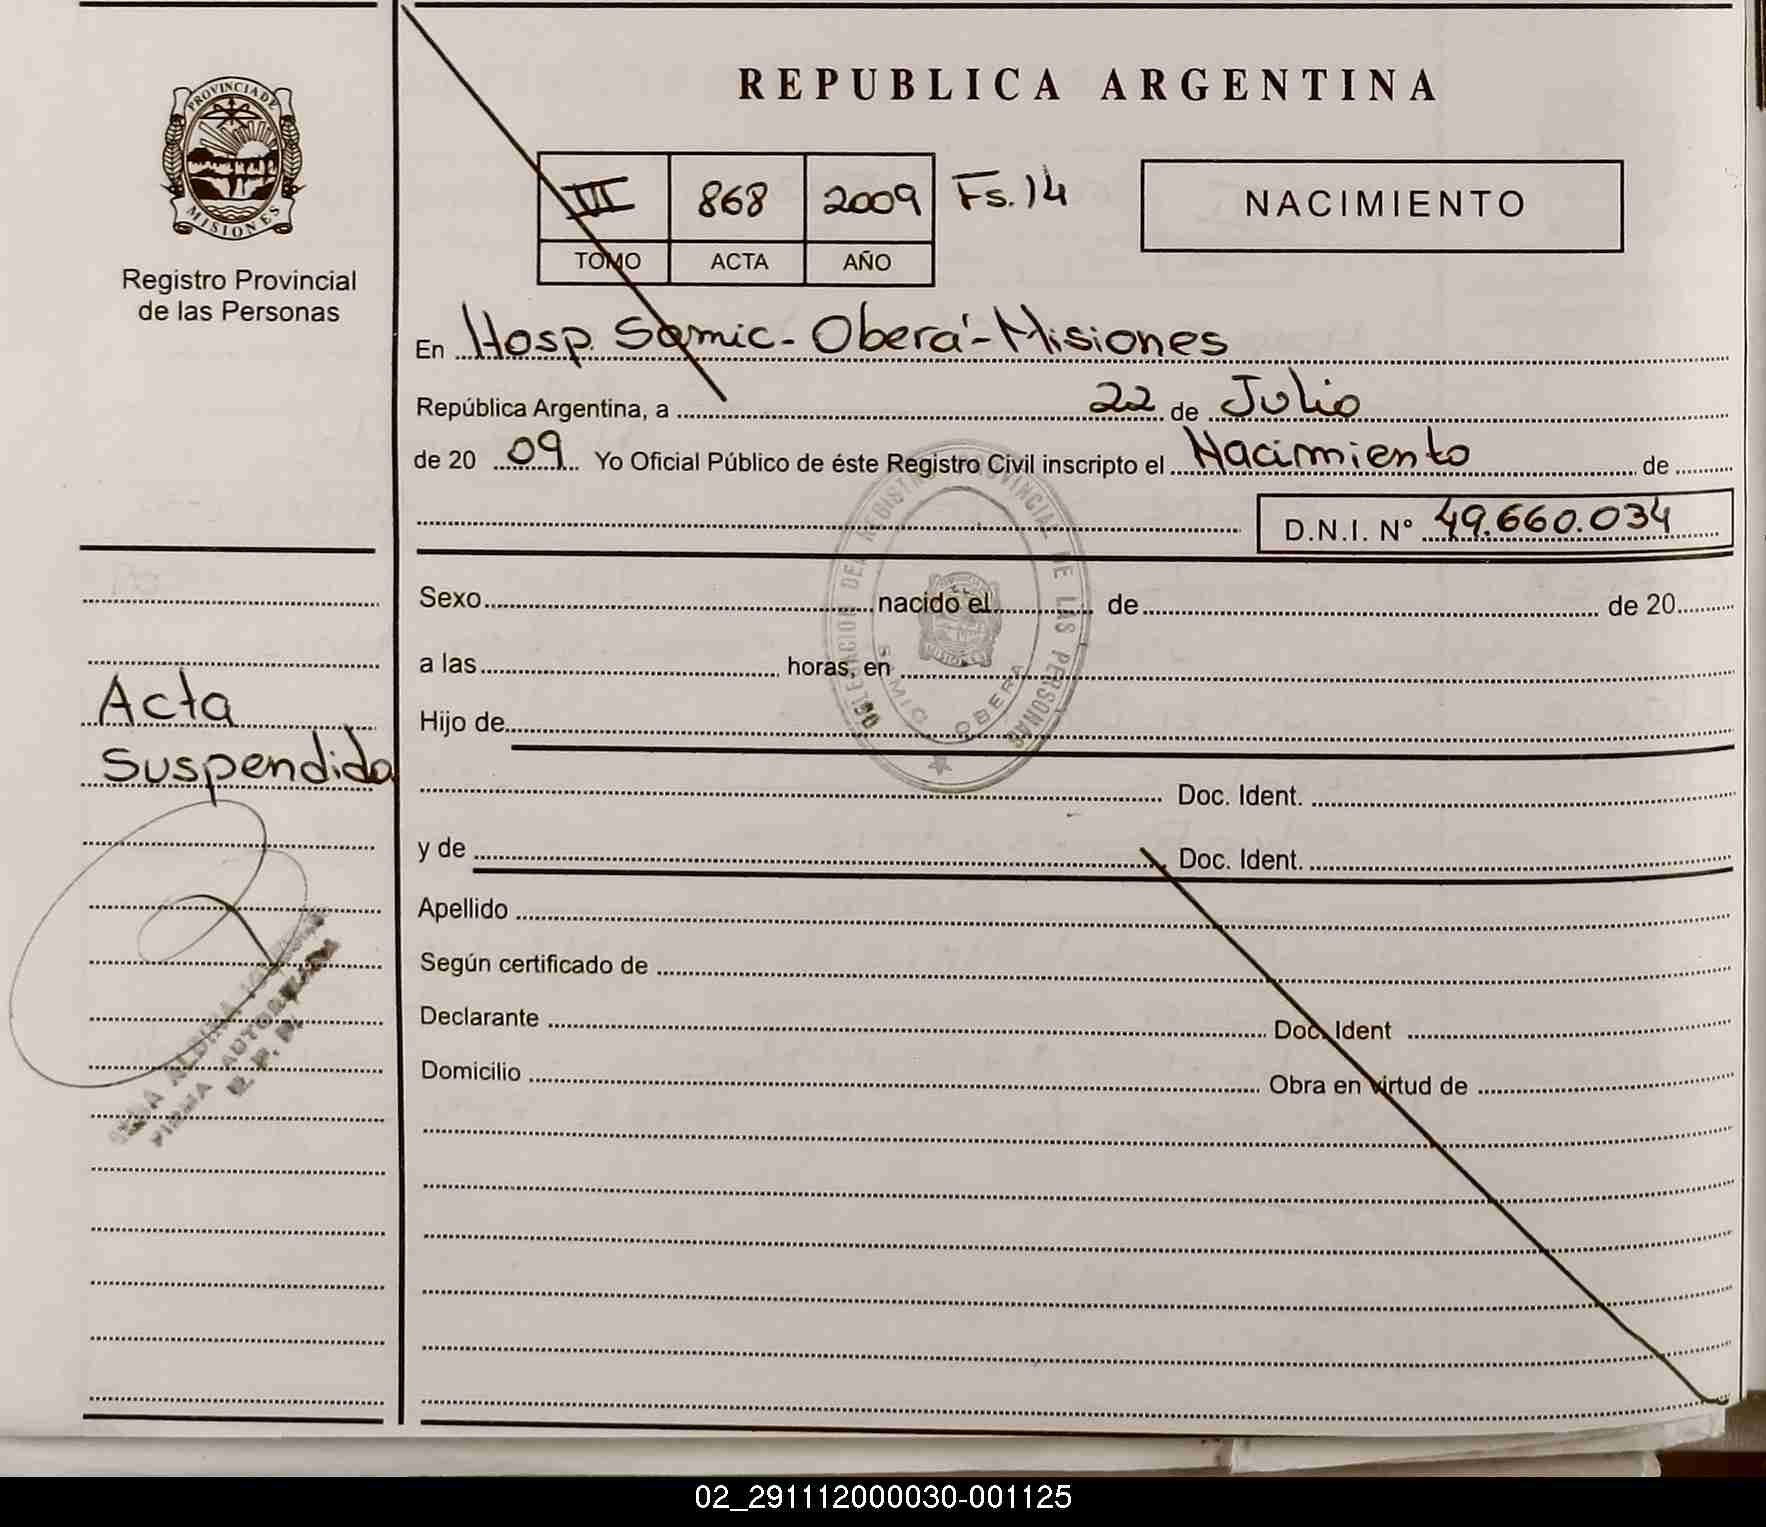 PROVINCIA DE
MISIONES
Registro Provincial
de las Personas
REPUBLICA ARGENTINA
VII 868 2009 Fs. 14
TOMO ACTA AÑO
NACIMIENTO
En Hosp. Samic - Oberá - Misiones
República Argentina, a 22 de Julio
de 20 09 Yo Oficial Público de éste Registro Civil inscripto el Nacimiento de
D.N.I. Nº 49.660.034
DELEGACION DEL REGISTRO PROVINCIAL DE LAS PERSONAS
SAMIC OBERA
Sexo nacido el de de 20
a las horas, en
Hijo de
Doc. Ident.
y de Doc. Ident.
Apellido
Según certificado de
Declarante Doc. Ident
Domicilio Obra en virtud de
Acta
Suspendida
FIRMA AUTORIZADA
R. P. P.
02_291112000030-001125